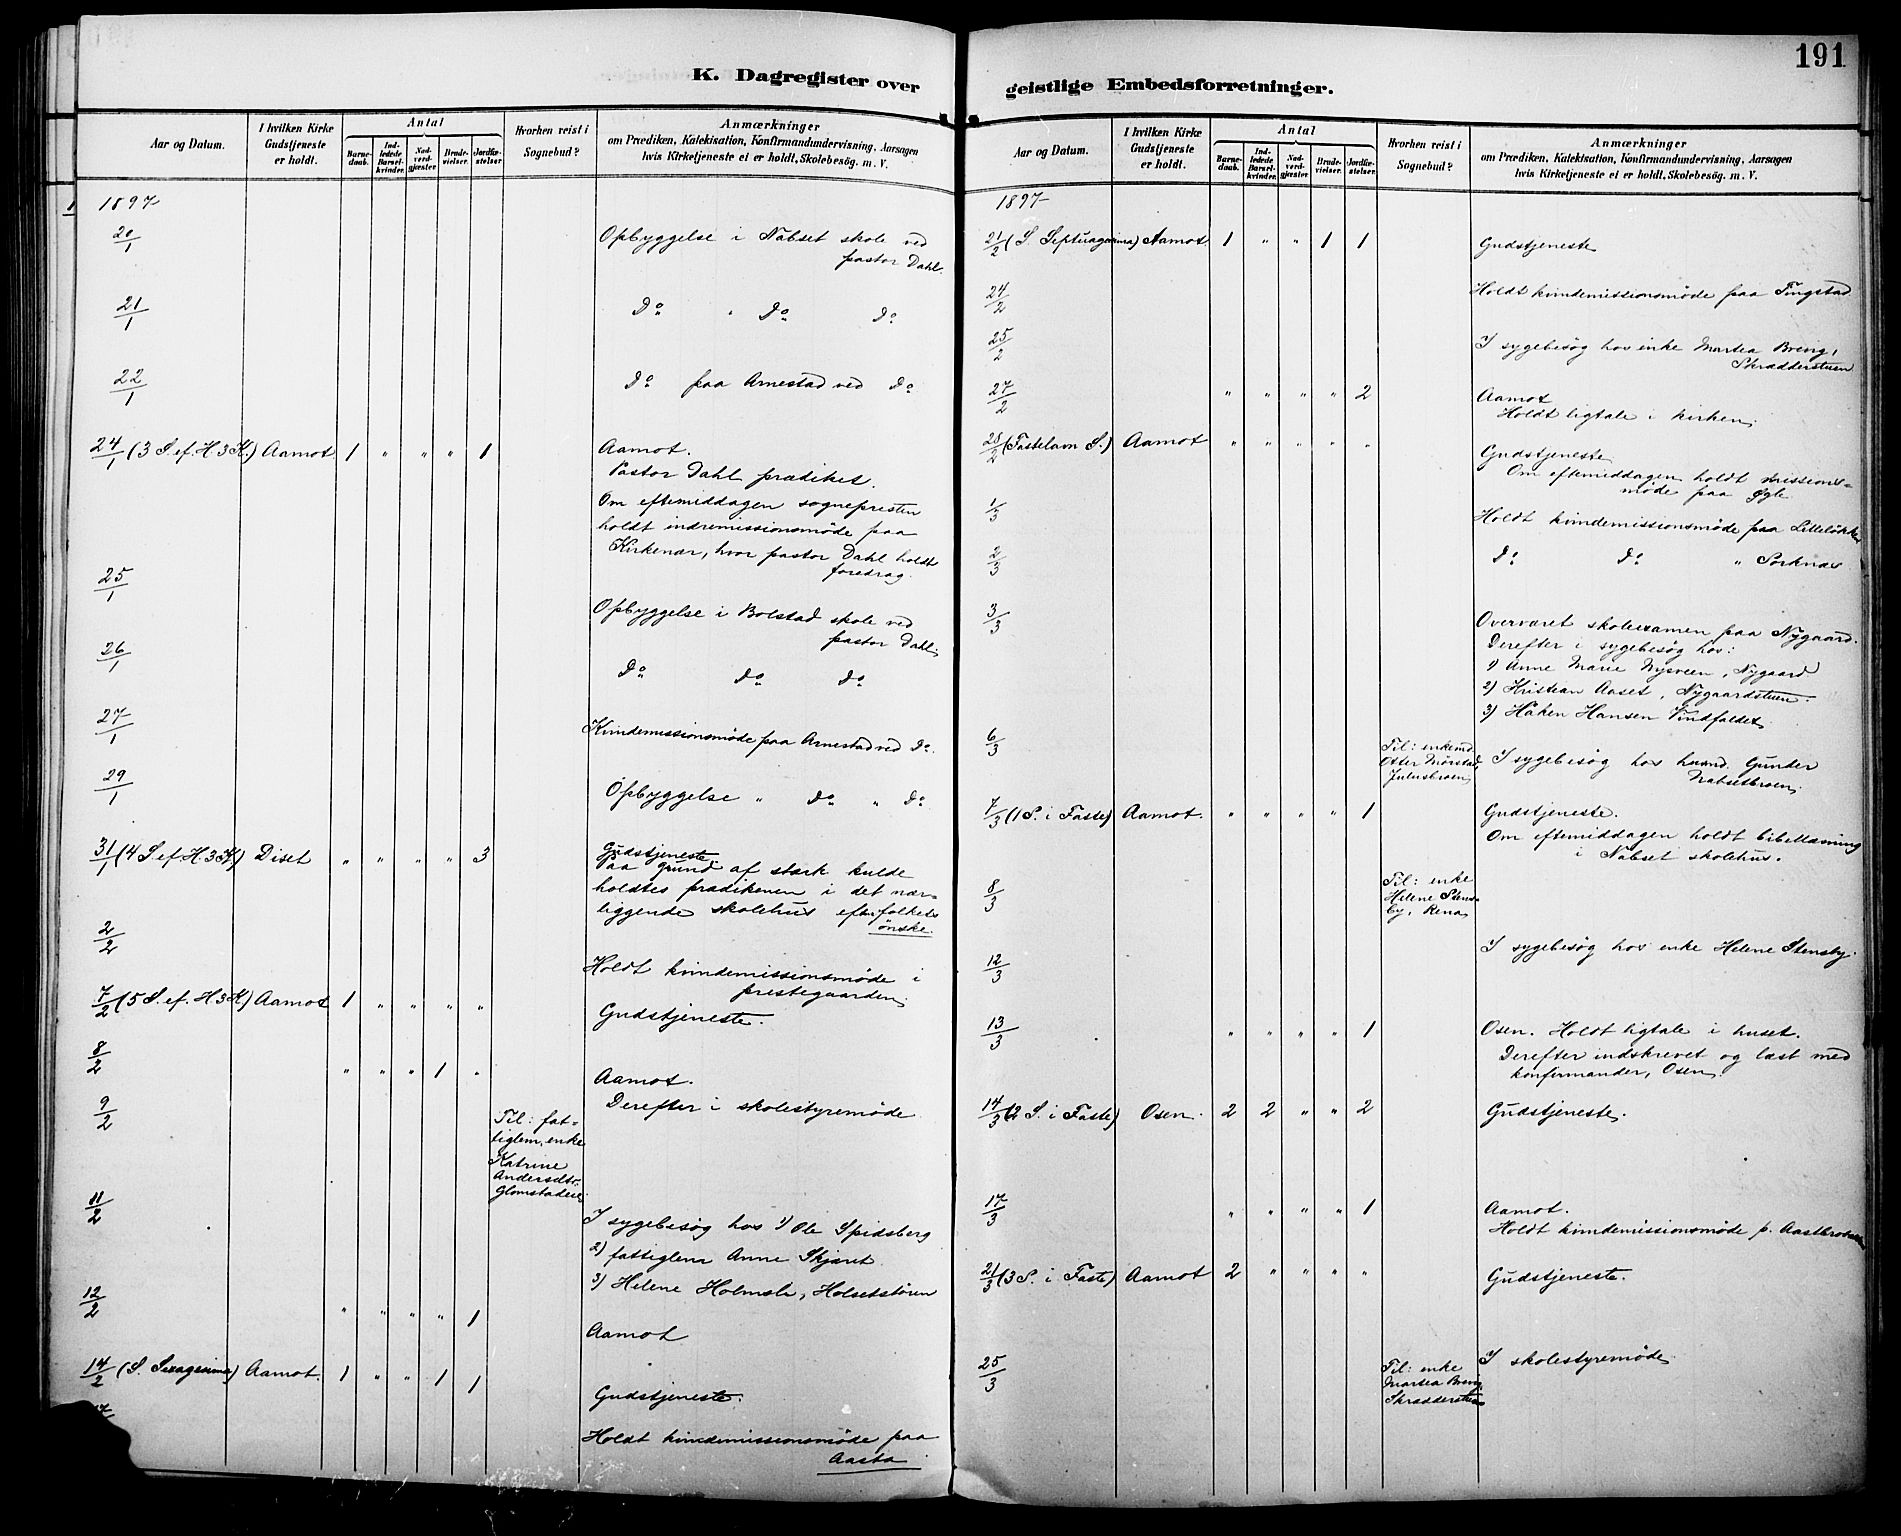 191
K. Dagregister over
geistlige Embedsforretninger.
Aar og Datum.
I hvilken Kirke
Gudstjeneste
er holdt.
Antal
Barne-
daab.
Ind-
ledede
Barsel-
kvinder.
Nad-
verd-
gjæster
Brude-
vielser.
Jordfæ-
stelser.
Hvorhen reist i
Sognebud?
Anmærkninger
om Prædiken, Katekisation, Konfirmandundervisning, Aarsagen
hvis Kirketjeneste ei er holdt, Skolebesøg. m. V.
1897
20/1 Opbyggelse i Nabset skole ved
pastor Dahl.
21/1 Do " Do Do
22/1 Do paa Arnestad ved Do
24/1 (3 S. ef. H. 3 K.) Aamot 1 " " " 1 Aamot.
Pastor Dahl prædiket.
Om eftemiddagen sognepresten
holdt indremissionsmøde paa
Kirkenær, hvor pastor Dahl holdt
foredrag.
25/1 Opbyggelse i Bolstad skole ved
pastor Dahl.
26/1 Do Do Do
27/1 Kvindemissionsmøde paa Arnestad ved Do.
29/1 Opbyggelse " Do " Do.
31/1 (4 S. ef. H. 3 K.) Diset " " " " 3 Gudstjeneste.
Paa grund af stærk kulde
holdtes prædikenen i det nær-
liggende skolehus efter folkets
ønske.
2/2 Holdt kvindemissionsmøde i
prestegaarden.
7/2 (5 S. ef. H. 3 K) Aamot 1 " " " " Gudstjeneste.
8/2 " " " 1 " Aamot.
Derefter i skolestyremøde.
9/2 Til: fat-
tiglem, enke
Katrine
Andersdtr.
Glomstadeie.
11/2 I sygebesøg hos 1) Ole Spidsberg
2) fattiglem Anne Skjæret.
3) Helene Holmsle, Holsetstøren
12/2 " " " " 1 Aamot
14/2 (S. Sexagesima) Aamot. 1 " " 1 1 Gudstjeneste.
Holdt kvindemissionsmøde paa
Aasta
Aar og Datum.
I hvilken Kirke
Gudstjeneste
er holdt.
Antal
Barne-
daab.
Ind-
ledede
Barsel-
kvinder.
Nad-
verd-
gjæster
Brude-
vielser.
Jordfæ-
stelser.
Hvorhen reist i
Sognebud?
Anmærkninger
om Prædiken, Katekisation, Konfirmandundervisning, Aarsagen
hvis Kirketjeneste ei er holdt, Skolebesøg. m. V.
1897
21/2 (S. Septuagesima) Aamot 1 " " 1 1 Gudstjeneste
24/2 Holdt kvindemissionsmøde paa Tingstad.
25/2 I sygebesøg hos enke Martea Brevig,
Skrædderstuen
27/2 " " " " 2 Aamot
Holdt ligtale i kirken.
28/2 (Fastelavn S.) Aamot " " " " " Gudstjeneste
Om eftemiddagen holdt missions-
møde paa Ygle.
1/3 Holdt kvindemissionsmøde paa Lilleløkken
2/3 Do Do " Sorknæs
3/3 Overværet skolexamen paa Nygaard.
Derefter i sygebesøg hos:
1) Anne Marie Nysveen, Nygaard
2) Kristian Aaset, Nygaardstuen.
3) Håken Hansen Vindfaldet.
6/3 Til: enkemd.
Oster Mørstad,
Julusbroen. I sygebesøg hos husmd. Gunder
Nabsetbroen.
7/3 (1 S. i Faste) Aamot. " " " " 1 Gudstjeneste.
Om eftemiddagen holdt bibellæsning
i Nabset skolehus.
8/3 Til: enke
Helene Stens-
by, Rena
12/3 I sygebesøg hos enke Helene Stensby.
13/3 " " " " 1 Osen. Holdt ligtale i huset.
Derefter indskrevet og læst med
konfirmander, Osen.
14/3 (2 S. i Faste) Osen. 2 2 " " 2 Gudstjeneste.
17/3 " " " " 1 Aamot.
Holdt kvindemissionsmøde p.
21/3 (3 S. i Faste) Aamot 2 " " " " Gudstjeneste.
25/3 Til: enke
Martea Brevig
Skrædderstuen I skolestyremøde